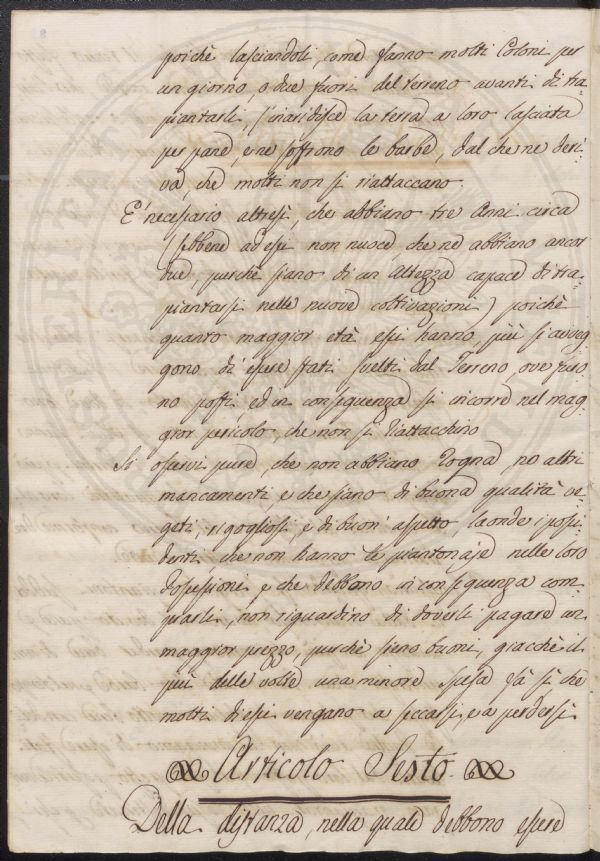 poichè lasciandoli, come fanno molti Coloni per
un giorno, o due fuori del terreno avanti di tra-
piantarli, s'inaridisce la terra a loro lasciata
per pane, e ne soffrono le barbe, dal che ne deri-
va, che molti non si riattaccano.
E' necessario altresì, che abbiano tre Anni circa
(sebbene ad essi non nuoce, che ne abbiano ancor
due, purchè siano di un Altezza capace di tra-
piantarsi nelle nuove coltivazioni) poichè
quanto maggior età essi hanno, più si avveg-
gono di essere stati svelti dal Terreno, ove furo-
no posti, ed in conseguenza si incorre nel mag-
gior pericolo, che non si riattacchino
Si osservi pure, che non abbiano Rogna, nè altri
mancamenti e che siano di buona qualità ve-
geti, rigogliosi, e di buon' aspetto, laonde i possi-
denti, che non hanno le piantonaje nelle loro
Possessioni e che debbono in conseguenza com-
prarli, non riguardino di doverli pagare un
maggior prezzo, purchè sieno buoni, giacchè il
più delle volte una minore spesa fà sì che
molti di essi vengano a seccarsi, e a perdersi
Articolo Sesto.
Della distanza, nella quale debbono essere